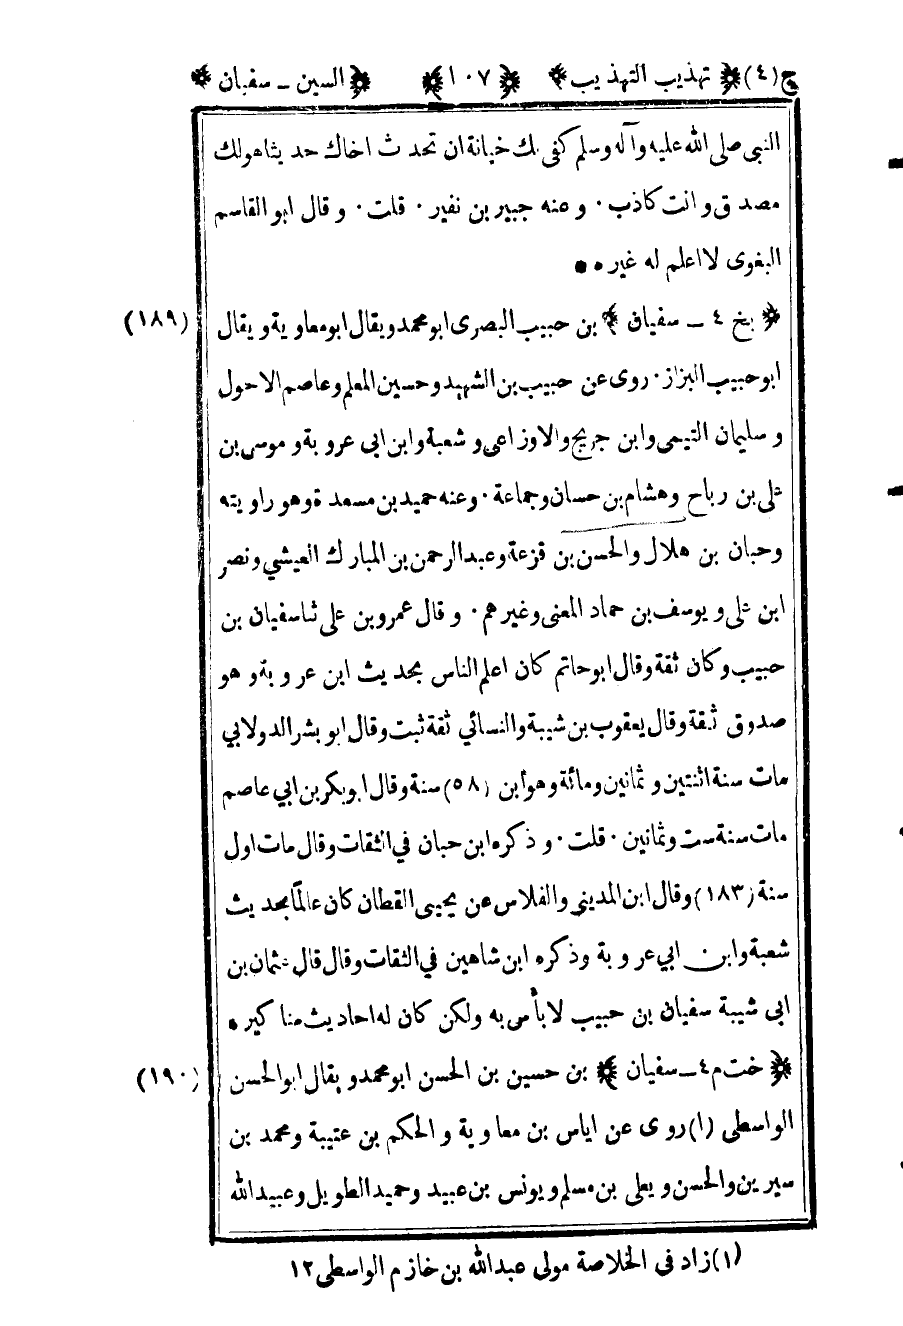 ج(٤) ﴿ تهذيب التهذيب ﴾ ﴿ ١٠٧ ﴾ ﴿ السين ـ سفيان ﴾
النبى صلى الله عليه وآله وسلم كفى بك خيانة ان تحدث اخاك حديثا هو لك
مصدق وانت كاذب ٠ وعنه جبير بن نفير ٠ قلت ٠ وقال ابو القاسم
البغوى لا اعلم له غيره ٠
﴿ بخ ٤ ـ سفيان ﴾ بن حبيب البصرى ابو محمد ويقال ابو معاوية ويقال (١٨٩)
ابو حبيب البزاز ٠ روى عن حبيب بن الشهيد وحسين المعلم وعاصم الاحول
وسليمان التيمى وابن جريج والاوزاعى وشعبة وابن ابى عروبة وموسى بن
على بن رباح وهشام بن حسان وجماعة ٠ وعنه حميد بن مسعدة وهو راويته
وحبان بن هلال والحسن بن قزعة وعبد الرحمن بن المبارك العيشي ونصر
ابن على ويوسف بن حماد المعنى وغيرهم ٠ وقال عمرو بن على ثنا سفيان بن
حبيب وكان ثقة وقال ابو حاتم كان اعلم الناس بحديث ابن عروبة وهو
صدوق ثقة وقال يعقوب بن شيبة والنسائي ثقة ثبت وقال ابو بشر الدولابي
مات سنة اثنتين وثمانين ومائة وهو ابن (٥٨) سنة وقال ابو بكر بن ابي عاصم
مات سنة ست وثمانين ٠ قلت ٠ وذكره ابن حبان في الثقات وقال مات اول
سنة (١٨٣) وقال ابن المديني والفلاس عن يحيى القطان كان عالمًا بحديث
شعبة وابن ابي عروبة وذكره ابن شاهين في الثقات وقال قال عثمان بن
ابى شيبة سفيان بن حبيب لا بأس به ولكن كان له احاديث مناكير ٠
﴿ خت م ٤ ـ سفيان ﴾ بن حسين بن الحسن ابو محمد ويقال ابو الحسن (١٩٠)
الواسطى (١) روى عن اياس بن معاوية والحكم بن عتيبة ومحمد بن
سيرين والحسن ويعلى بن مسلم ويونس بن عبيد وحميد الطويل وعبيد الله
(١) زاد فى الخلاصة مولى عبد الله بن خازم الواسطى ١٢